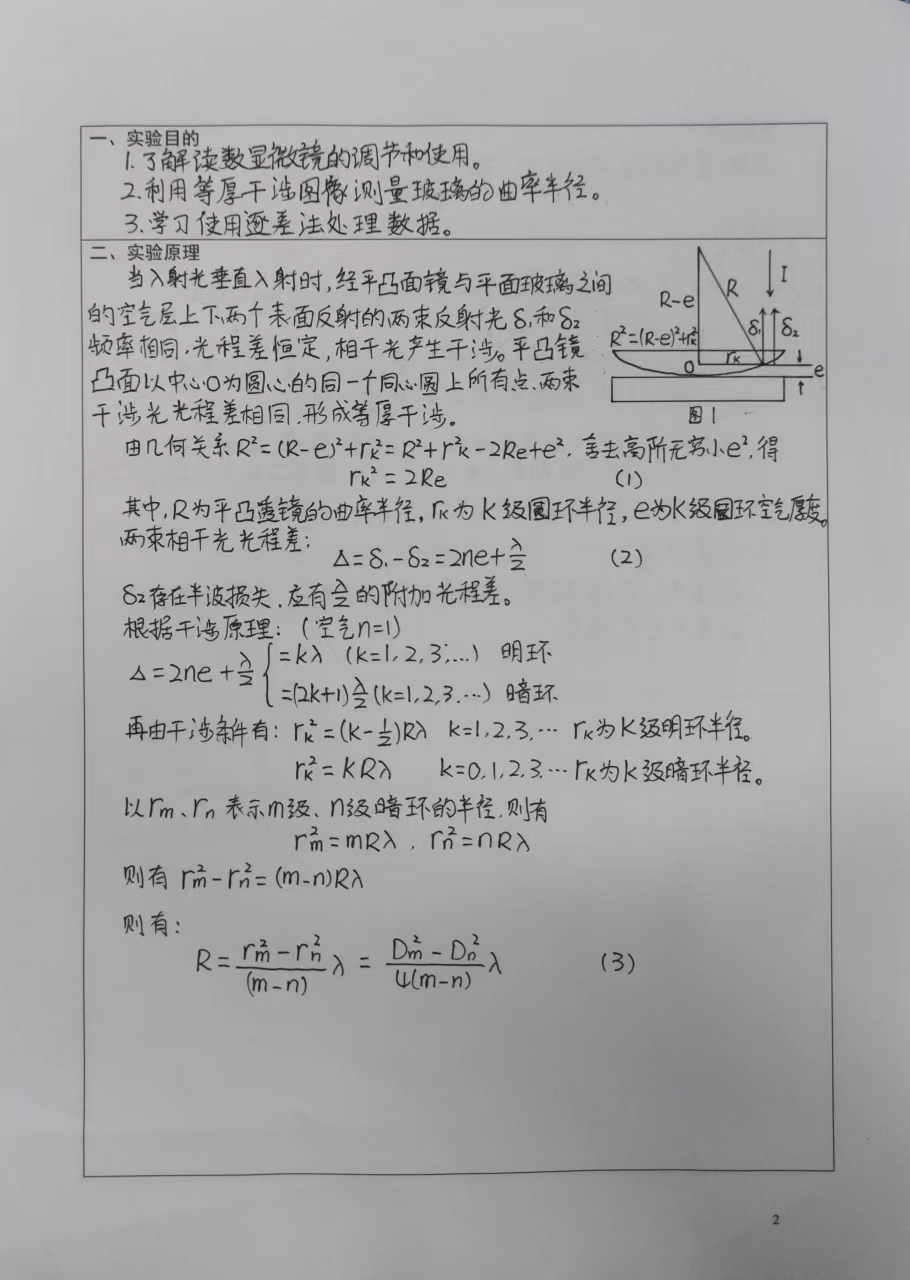 一、实验目的
1.了解读数显微镜的调节和使用。
2.利用等厚干涉图像测量玻璃的曲率半径。
3.学习使用逐差法处理数据。
二、实验原理
当入射光垂直入射时,经平凸面镜与平面玻璃之间
的空气层上下两个表面反射的两束反射光δ₁和δ₂
频率相同,光程差恒定,相干光产生干涉。平凸镜
凸面以中心O为圆心的同一个同心圆上所有点,两束
干涉光光程差相同,形成等厚干涉。
R-e
R
I
δ₁
δ₂
R²=(R-e)²+rₖ²
rₖ
O
e
图1
由几何关系R²=(R-e)²+rₖ²=R²+r²ₖ-2Re+e²,舍去高阶无穷小e²,得
rₖ²=2Re (1)
其中,R为平凸透镜的曲率半径,rₖ为K级圆环半径,e为K级圆环空气厚度。
两束相干光光程差:
Δ=δ₁-δ₂=2ne+λ/2 (2)
δ₂存在半波损失,应有λ/2的附加光程差。
根据干涉原理:(空气n=1)
Δ=2ne+λ/2 {=kλ (k=1,2,3,…) 明环
=(2k+1)λ/2 (k=1,2,3,…) 暗环
再由干涉条件有:rₖ²=(k-1/2)Rλ k=1,2,3,… rₖ为K级明环半径。
rₖ²=KRλ k=0,1,2,3,… rₖ为K级暗环半径。
以rm、rn表示m级、n级暗环的半径,则有
rm²=mRλ,rn²=nRλ
则有 rm²-rn²=(m-n)Rλ
则有:
R=(rm²-rn²)/(m-n) λ=(Dm²-Dn²)/4(m-n) λ (3)
2